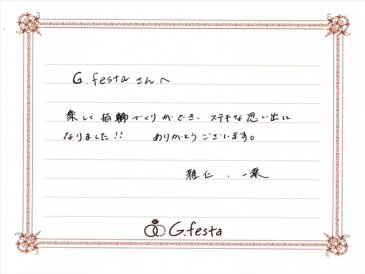 G.festaさんへ
楽しく指輪づくりができ、ステキな思い出に
なりました!! ありがとうございます。
雅仁、一葉
G.festa